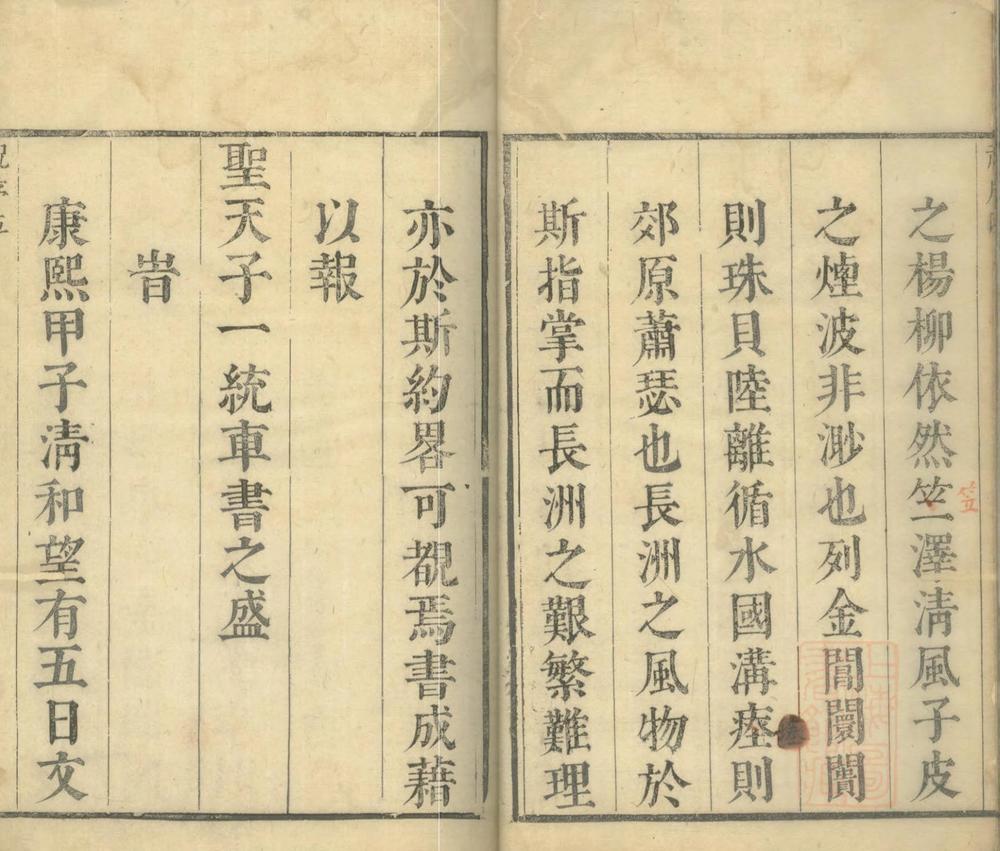 之楊柳依然竺澤清風子皮
之煙波非渺也列金閶闤闠
則珠貝陸離循水國溝瘞則
郊原蕭瑟也長洲之風物於
斯指掌而長洲之艱繁難理
亦於斯約畧可覩焉書成藉
以報
聖天子一統車書之盛
旹
康熙甲子清和望有五日文
笠